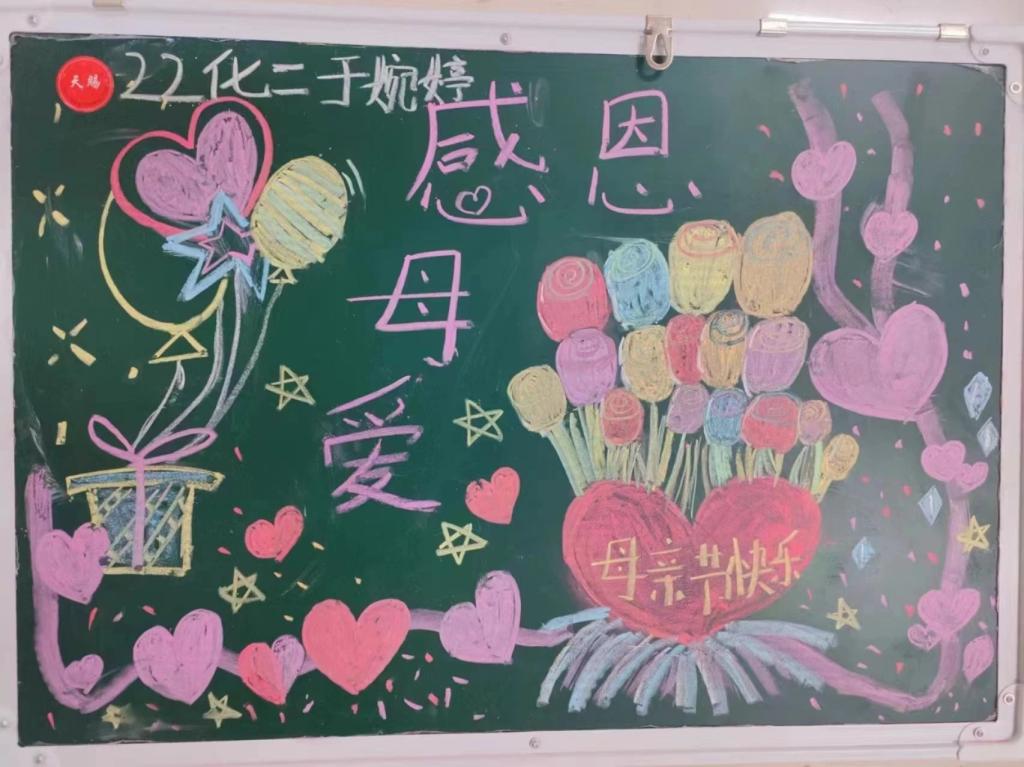 天赐
22化二于婉婷
感恩
母
爱
母亲节快乐